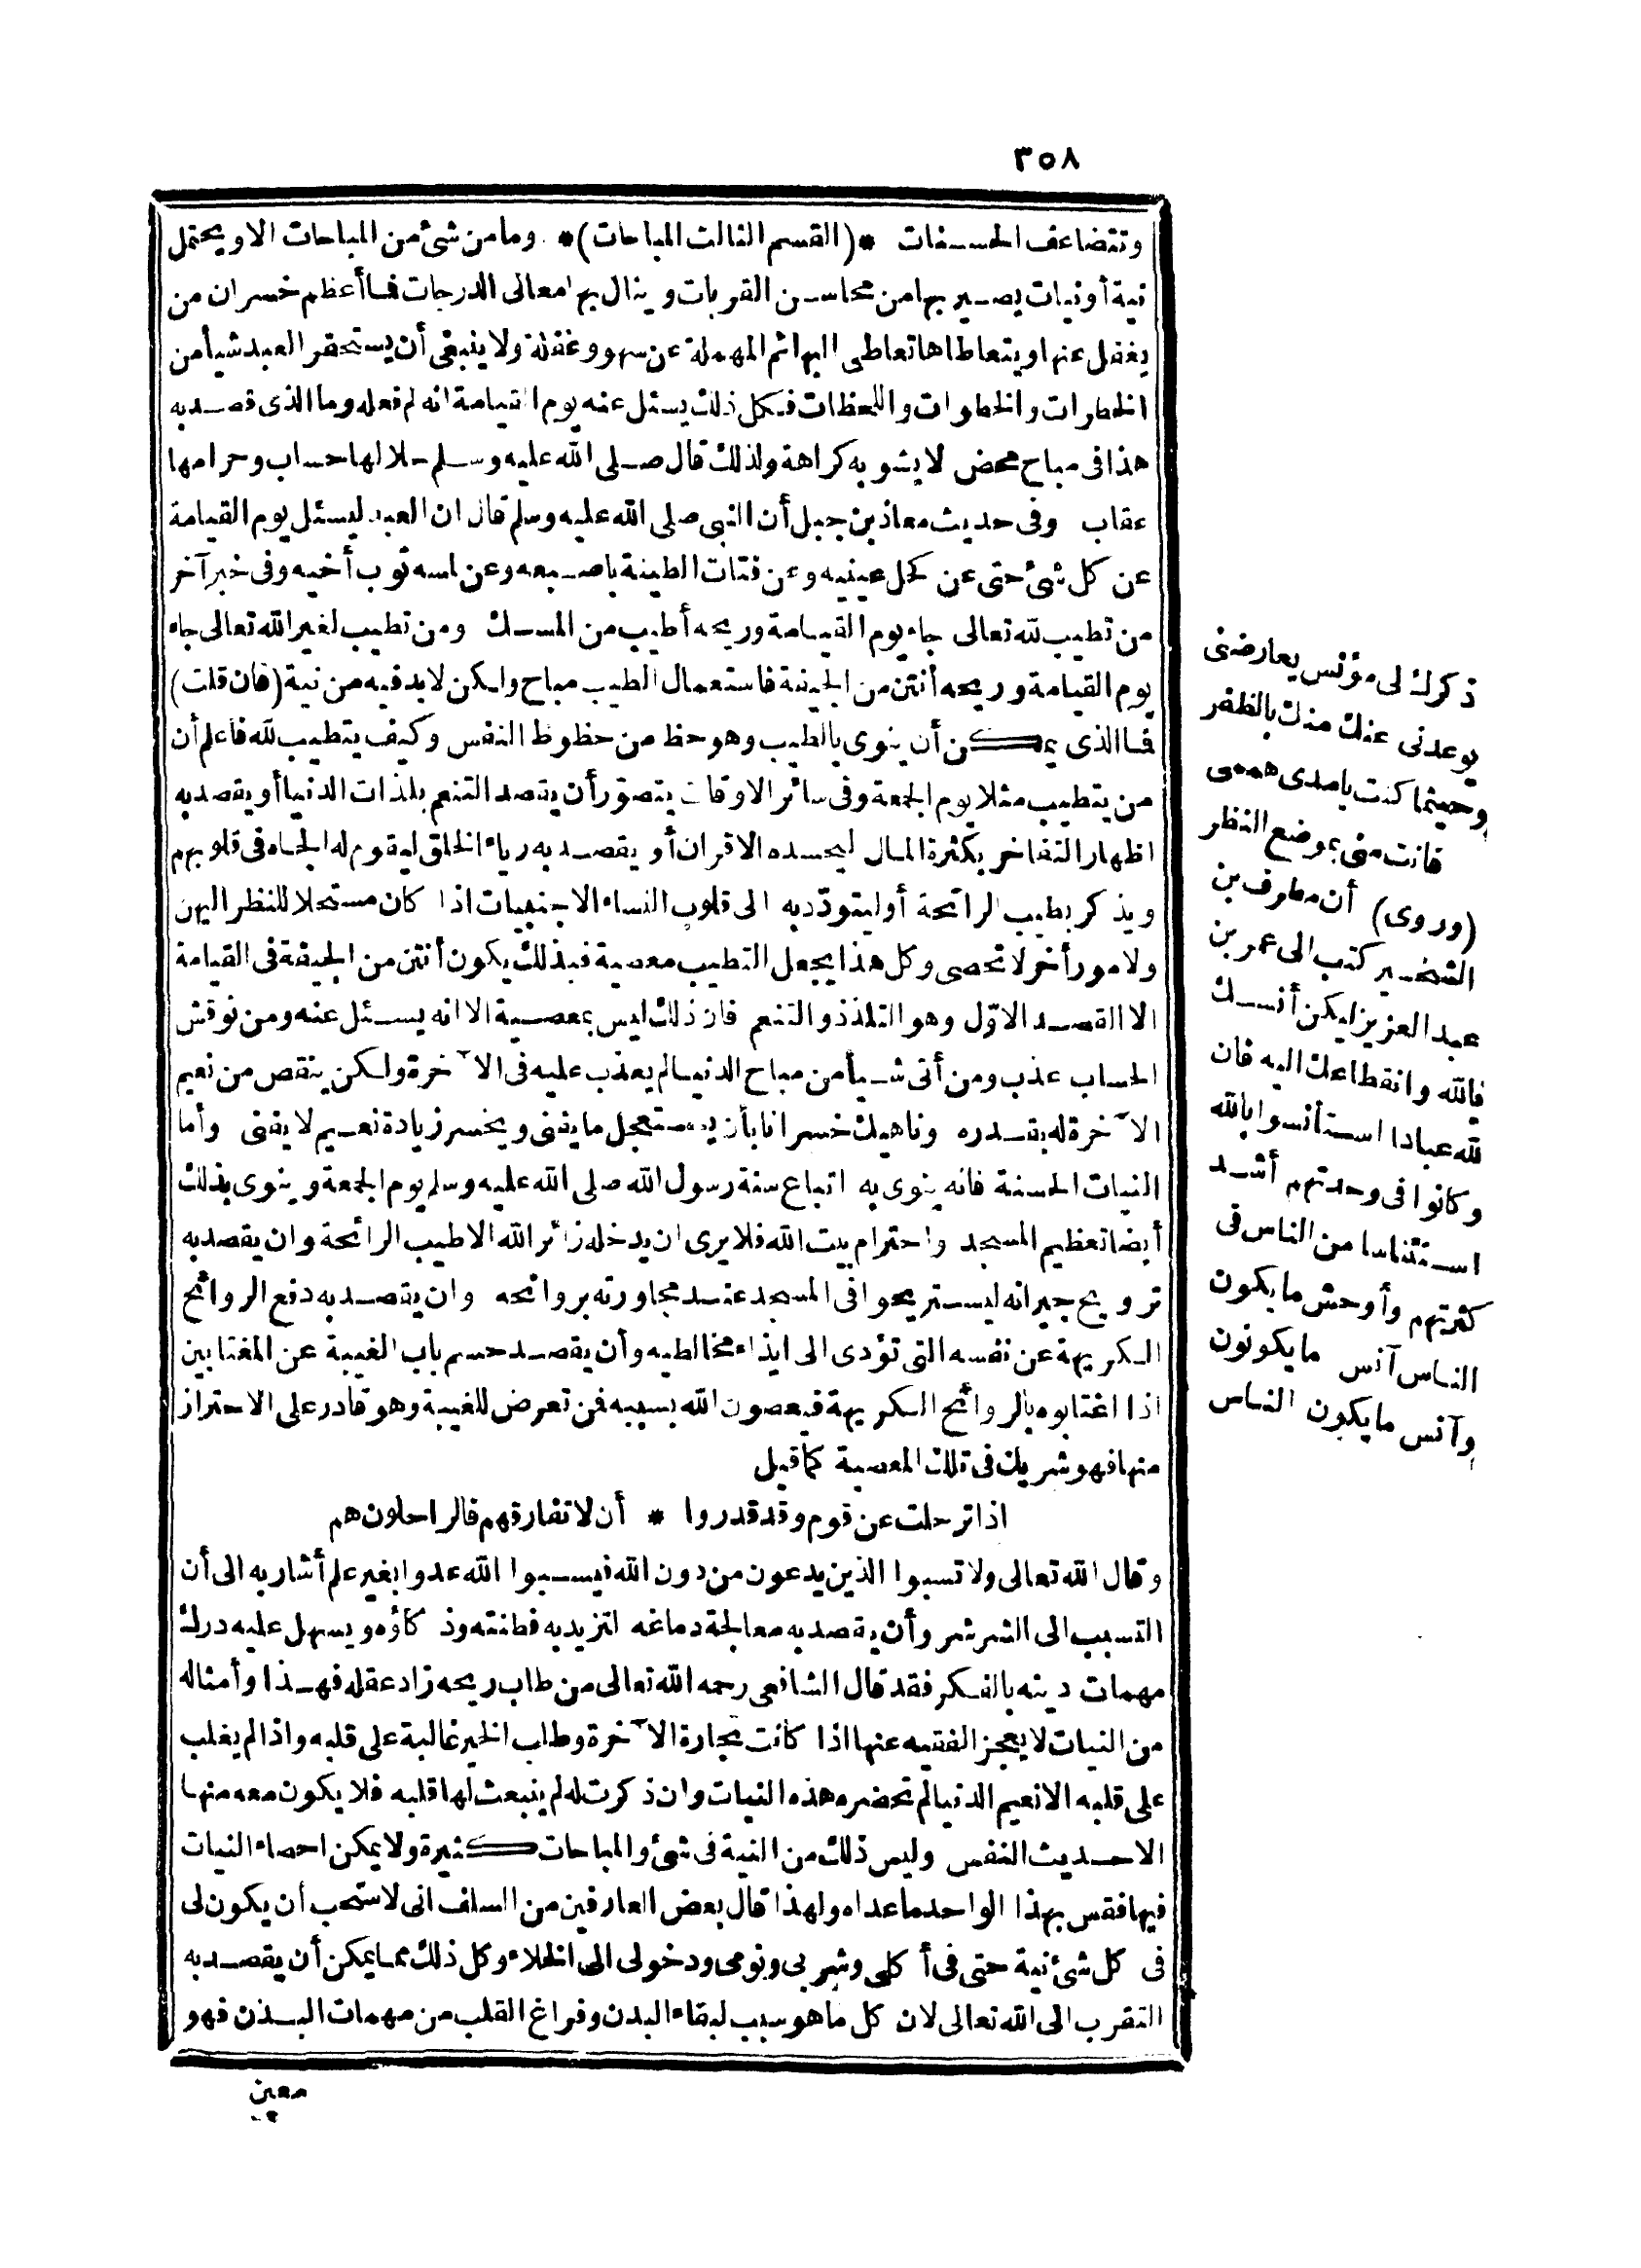 ٣٥٨
وتتضاعف الحسنات *(القسم الثالث المباحات)* وما من شئ من المباحات الا ويحتمل
نية أو نيات يصير بها من محاسن القربات وينال بها معالى الدرجات فما أعظم خسران من
يغفل عنها ويتعاطاها تعاطى البهائم المهملة عن سهو وغفلة ولا ينبغى أن يستحقر العبد شيأ من
الخطرات والخطوات واللحظات فكل ذلك يسئل عنه يوم القيامة انه لم فعله وما الذى قصد به
هذا فى مباح محض لا يشوبه كراهة ولذلك قال صلى الله عليه وسلم حلالها حساب وحرامها
عقاب وفى حديث معاذ بن جبل أن النبى صلى الله عليه وسلم قال ان العبد ليسئل يوم القيامة
عن كل شئ حتى عن كحل عينيه وعن فتات الطينة باصبعه وعن لمسه ثوب أخيه وفى خبر آخر
من تطيب لله تعالى جاء يوم القيامة وريحه أطيب من المسك ومن تطيب لغير الله تعالى جاء
يوم القيامة وريحه أنتن من الجيفة فاستعمال الطيب مباح ولكن لا بد فيه من نية (فان قلت)
فما الذى يمكن أن ينوى بالطيب وهو حظ من حظوظ النفس وكيف يتطيب لله فاعلم أن
من يتطيب مثلا يوم الجمعة وفى سائر الاوقات يتصوّر أن يقصد التنعم بلذات الدنيا أو يقصد به
اظهار التفاخر بكثرة المال ليحسده الاقران أو يقصد به رياء الخلق ليقوم له الجاه فى قلوبهم
ويذكر بطيب الرائحة أو ليتودّد به الى قلوب النساء الاجنبيات اذا كان مستحلا للنظر اليهن
ولامور أخر لا تحصى وكل هذا يجعل التطيب معصية فبذلك يكون أنتن من الجيفة فى القيامة
الا القصد الاوّل وهو التلذذ والتنعم فان ذلك ليس بمعصية الا انه يسئل عنه ومن نوقش
الحساب عذب ومن أتى شيأ من مباح الدنيا لم يعذب عليه فى الآخرة ولكن ينقص من نعيم
الآخرة له بقدره وناهيك خسرانا بأن يستعجل ما يفنى ويخسر زيادة نعيم لا يفنى وأما
النيات الحسنة فانه ينوى به اتباع سنة رسول الله صلى الله عليه وسلم يوم الجمعة وينوى بذلك
أيضا تعظيم المسجد واحترام بيت الله فلا يرى ان يدخله زائر الله الا طيب الرائحة وان يقصد به
ترويح جيرانه ليستريحوا فى المسجد عند مجاورته بروائحه وان يقصد به دفع الروائح
الكريهة عن نفسه التى تؤدى الى ايذاء مخالطيه وأن يقصد حسم باب الغيبة عن المغتابين
اذا اغتابوه بالروائح الكريهة فيعصون الله بسببه فمن تعرض للغيبة وهو قادر على الاحتراز
منها فهو شريك فى تلك المعصية كما قيل
اذا ترحلت عن قوم وقد قدروا * أن لا تفارقهم فالراحلون هم
وقال الله تعالى ولا تسبوا الذين يدعون من دون الله فيسبوا الله عدوا بغير علم أشار به الى أن
التسبب الى الشر شر وأن يقصد به معالجة دماغه لتزيد به فطنته وذكاؤه ويسهل عليه درك
مهمات دينه بالفكر فقد قال الشافعى رحمه الله تعالى من طاب ريحه زاد عقله فهذا وأمثاله
من النيات لا يعجز الفقيه عنها اذا كانت تجارة الآخرة وطلب الخير غالبة على قلبه واذا لم يغلب
على قلبه الا نعيم الدنيا لم تحضره هذه النيات وان ذكرت له لم ينبعث لها قلبه فلا يكون معه منها
الا حديث النفس وليس ذلك من النية فى شئ والمباحات كثيرة ولا يمكن احصاء النيات
فيها فقس بهذا الواحد ما عداه ولهذا قال بعض العارفين من السلف انى لاستحب أن يكون لى
فى كل شئ نية حتى فى أكلى وشربى ونومى ودخولى الى الخلاء وكل ذلك مما يمكن أن يقصد به
التقرب الى الله تعالى لان كل ما هو سبب لبقاء البدن وفراغ القلب من مهمات البدن فهو
معين
ذكرك لى مؤنس يعارضنى
يوعدنى عنك منك بالظفر
وحيثما كنت يا مدى هممى
فانت منى بموضع النظر
(وروى) أن مطرف بن
الشخير كتب الى عمر بن
عبد العزيز ليكن أنسك
بالله وانقطاعك اليه فان
لله عبادا استأنسوا بالله
وكانوا فى وحدتهم أشد
استئناسا من الناس فى
كثرتهم وأوحش ما يكون
الناس آنس ما يكونون
وآنس ما يكون الناس